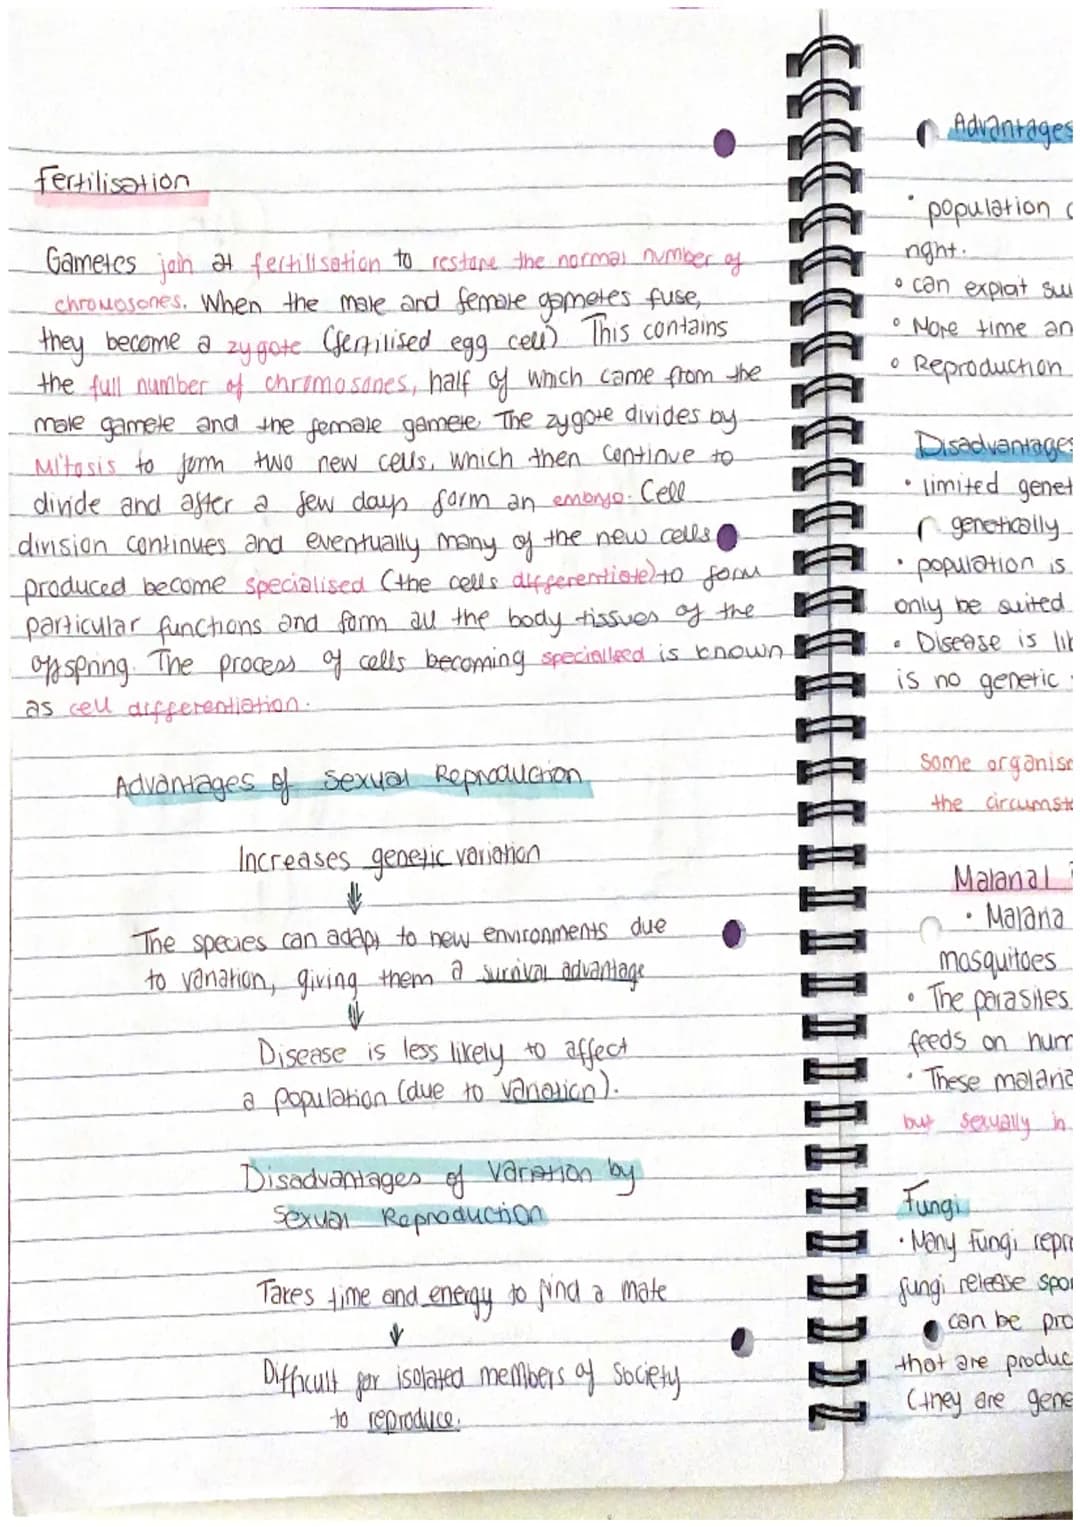 Fertilisation
Gametes join at fertilisation to restore the normal number of
chromosones. When the male and female gametes fuse,
they become a zygote (fertilised egg cell) This contains
the full number of chromosones, half of which came from the
male gamete and the female gamete. The zygote divides by
Mitosis to form two new cells, which then continue to
divide and after a few days form an embryo. Cell
division continues and eventually many of the new cells
produced become specialised (the cells differentiate) to form
particular functions and form all the body tissues of the
offspring. The process of cells becoming specialised is known
as cell differentiation.
Advantages of Sexual Reproduction
Increases genetic variation
The species can adapt to new environments due
to variation, giving them a survival advantage
Disease is less likely to affect
a population (due to variation).
Disadvantages of Variation by
Sexual Reproduction
Takes time and energy to find a mate
Difficult for isolated members of Society
to reproduce.
Advantages
• population
right.
• can exploit
• More time an
• Reproduction
Disadvantages
• limited genet
genetically
• population is
only be suited
• Disease is
is no genetic
Some organism
the circumsta
Malarial
• Malaria
mosquitoes
• The parasites
feeds on hum
• These malaria
but sexually in
Fungi
• Many fungi repro
fungi release spor
can be pro
that are produc
(they are gene